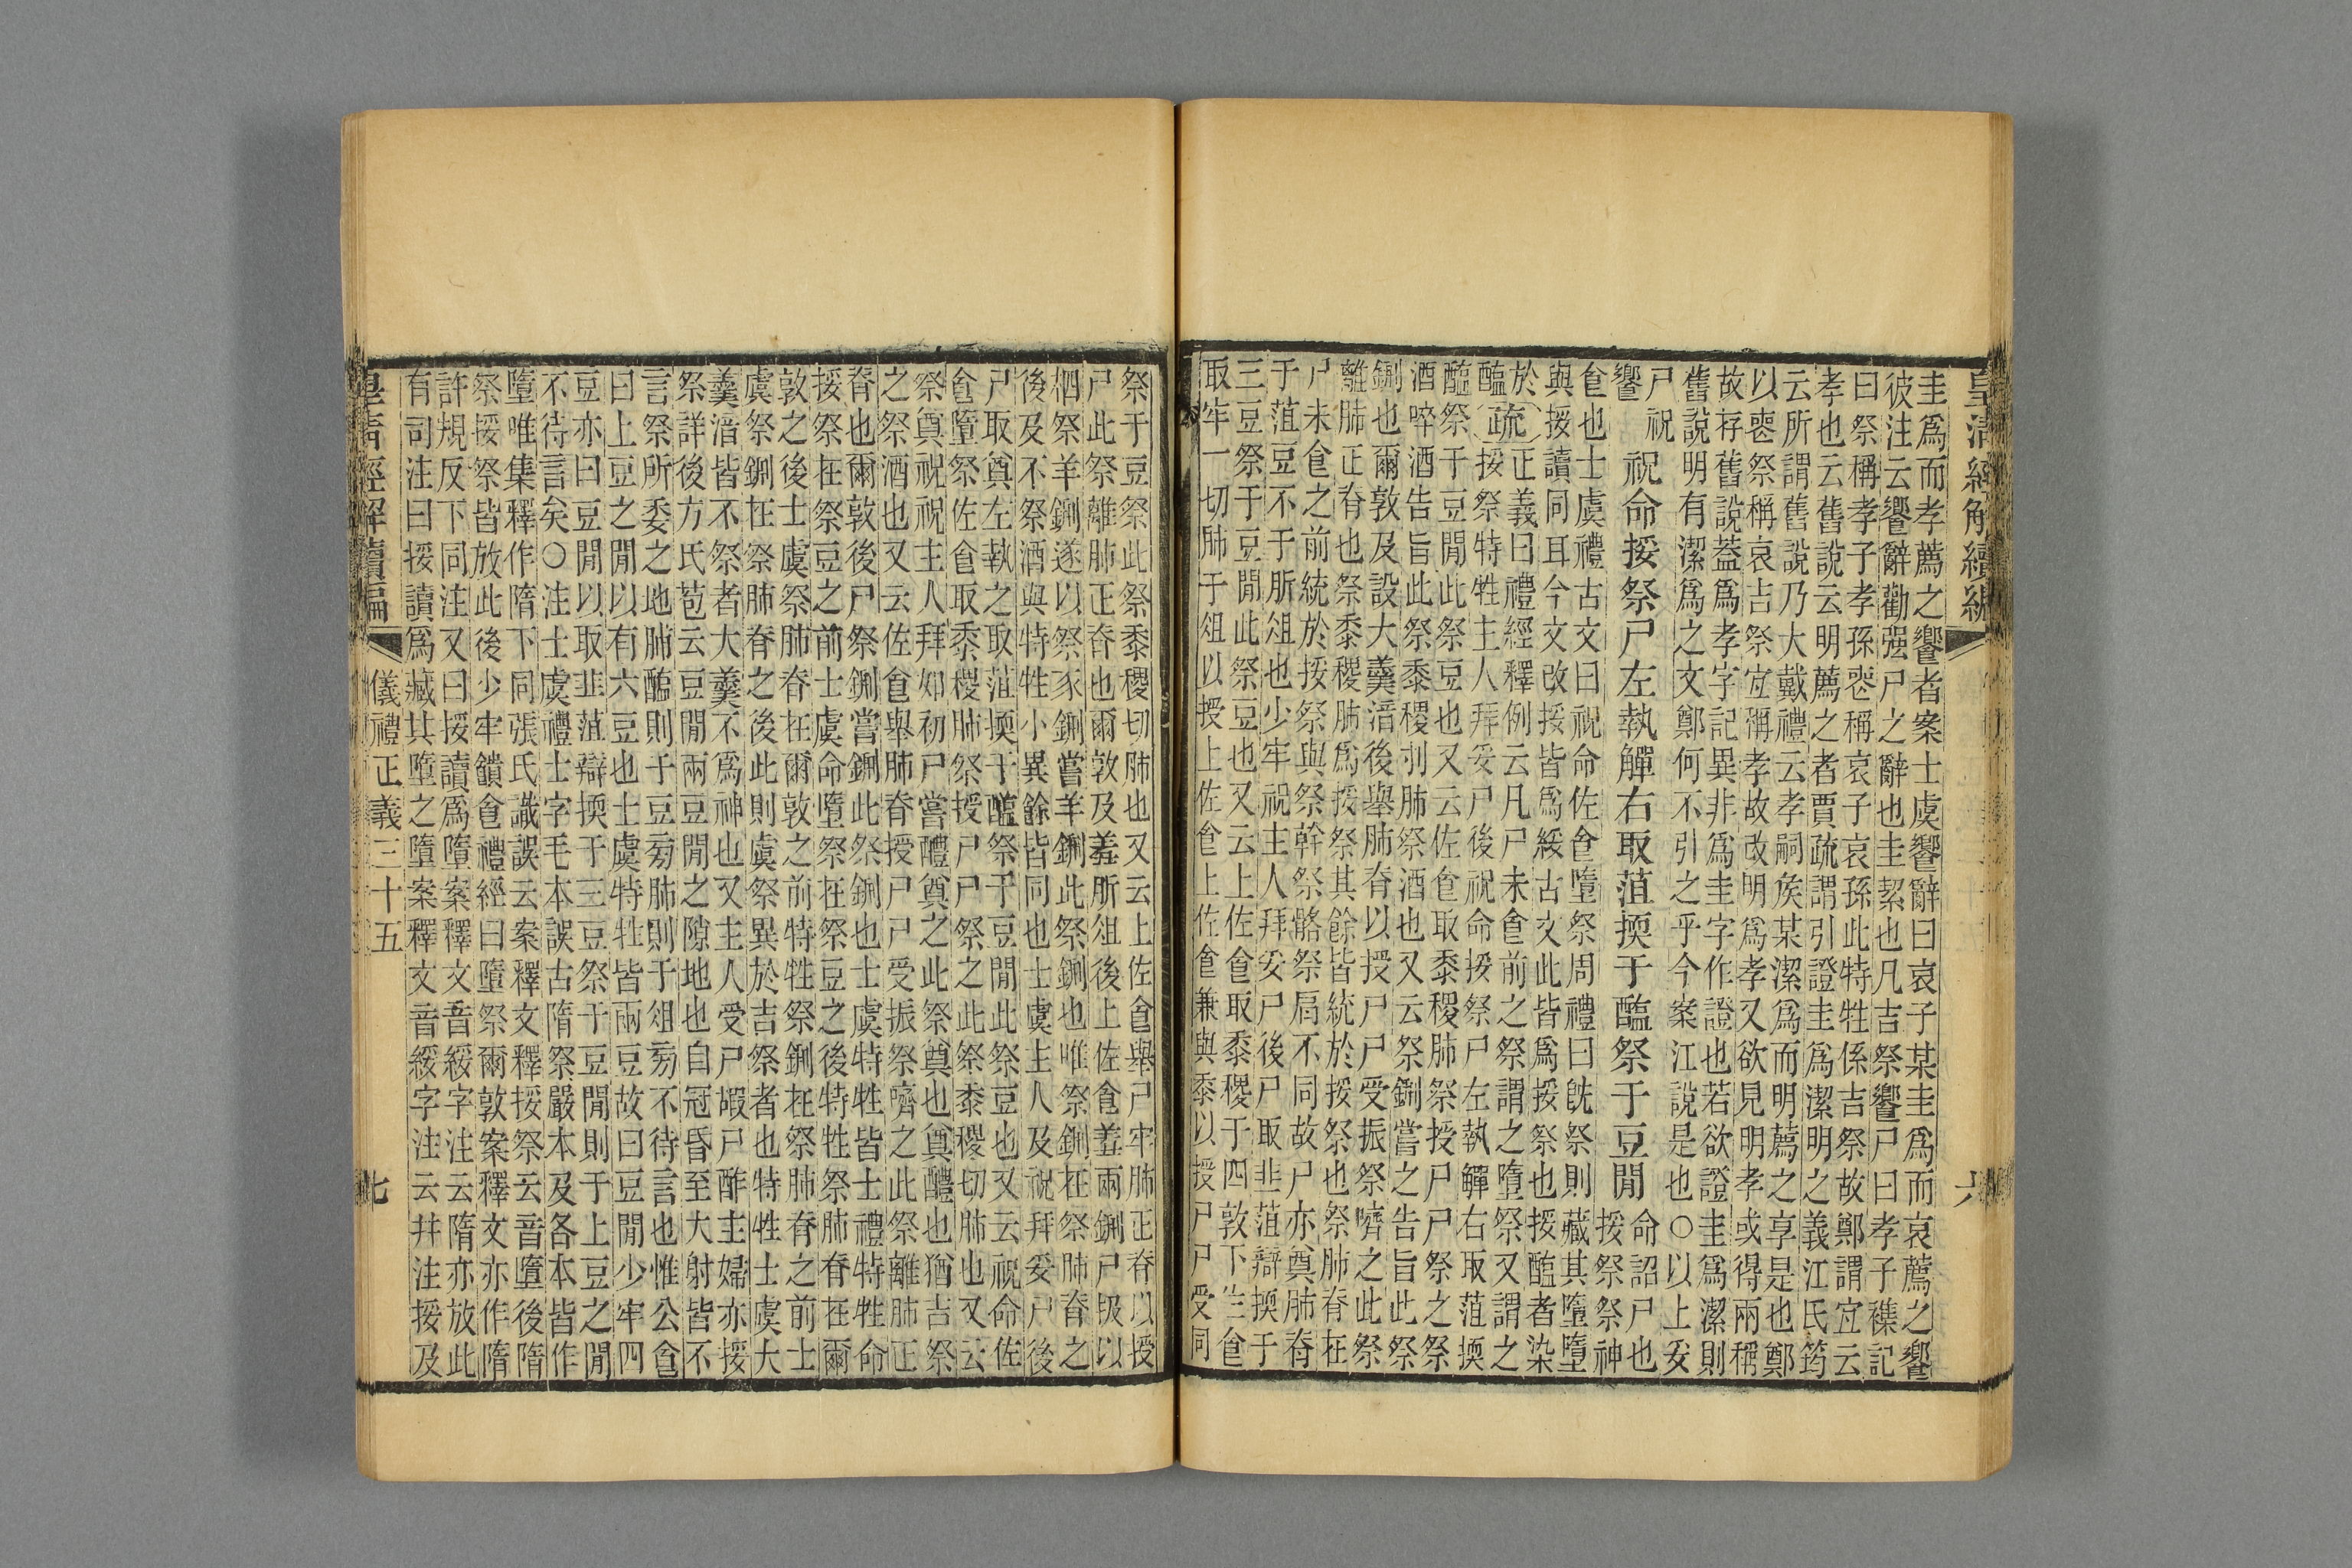 皇清經解續編
六
圭爲而孝薦之饗者案士虞饗辭曰哀子某圭爲而哀薦之饗
彼注云饗辭勸强尸之辭也圭絜也凡吉祭饗尸曰孝子襍記
曰祭稱孝子孝孫喪稱哀子哀孫此特牲係吉祭故鄭謂宜云
孝也云舊說云明薦之者賈疏謂引證圭爲潔明之義江氏筠
云所謂舊說乃大戴禮云孝嗣矦某潔爲而明薦之享是也鄭
以喪祭稱哀吉祭宜稱孝故改明爲孝又欲見明孝或得兩稱
故存舊說葢爲孝字記異非爲圭字作證也若欲證圭爲潔則
舊說明有潔爲之文鄭何不引之乎今案江說是也○以上妥
尸
饗
祝祝命挼祭尸左執觶右取菹㨎于醢祭于豆閒
命詔尸也
挼祭祭神
食也士虞禮古文曰祝命佐食墮祭周禮曰旣祭則藏其墮墮
與挼讀同耳今文改挼皆爲綏古文此皆爲挼祭也挼醢者染
於
醢
疏正義曰禮經釋例云凡尸未食前之祭謂之墮祭又謂之
挼祭特牲主人拜妥尸後祝命挼祭尸左執觶右取菹㨎
醢祭于豆閒此祭豆也又云佐食取黍稷肺祭授尸尸祭之祭
酒啐酒告旨此祭黍稷刌肺祭酒也又云祭鉶嘗之告旨此祭
鉶也爾敦及設大羹湇後舉肺脊以授尸尸受振祭嚌之此祭
離肺正脊也祭黍稷肺爲挼祭其餘皆統於挼祭也祭肺脊在
尸未食之前統於挼祭與祭幹祭骼祭肩不同故尸亦奠肺脊
于菹豆不于肵俎也少牢祝主人拜妥尸後尸取韭菹辯㨎于
三豆祭于豆閒此祭豆也又云上佐食取黍稷于四敦下佐食
取牢一切肺于俎以授上佐食上佐食兼與黍以授尸尸受同
祭于豆祭此祭黍稷切肺也又云上佐食舉尸牢肺正脊以授
尸此祭離肺正脊也爾敦及羞肵俎後上佐食羞兩鉶尸扱以
柶祭羊鉶遂以祭豕鉶嘗羊鉶此祭鉶也唯祭鉶在祭肺脊之
後及不祭酒與特牲小異餘皆同也士虞主人及祝拜妥尸後
尸取奠左執之取菹㨎于醢祭于豆閒此祭豆也又云祝命佐
食墮祭佐食取黍稷肺祭授尸尸祭之此祭黍稷切肺也又云
祭奠祝祝主人拜如初尸嘗醴奠之此祭奠也奠醴也猶吉祭
之祭酒也又云佐食舉肺脊授尸尸受振祭嚌之此祭離肺正
脊也爾敦後尸祭鉶嘗鉶此祭鉶也士虞特牲皆士禮特牲命
挼祭在祭豆之前士虞命墮祭在祭豆之後特牲祭肺脊在爾
敦之後士虞祭肺脊在爾敦之前特牲祭鉶在祭肺脊之前士
虞祭鉶在祭肺脊之後此則虞祭異於吉祭者也特牲士虞大
羹湇皆不祭者大羹不爲神也又主人受尸嘏尸酢主婦亦挼
祭詳後方氏苞云豆閒兩豆閒之隙地也自冠昏至大射皆不
言祭所委之地肺醢則于豆㫄肺則于俎㫄不待言也惟公食
曰上豆之閒以有六豆也士虞特牲皆兩豆故曰豆閒少牢四
豆亦曰豆閒以取韭菹辯㨎于三豆祭于豆閒則于上豆之閒
不待言矣○注士虞禮士字毛本誤古隋祭嚴本及各本皆作
墮唯集釋作隋下同張氏識誤云案釋文釋挼祭云音墮後隋
祭挼祭皆放此後少牢饋食禮經曰墮祭爾敦案釋文亦作隋
許規反下同注又曰挼讀爲墮案釋文吾綏字注云隋亦放此
有司注曰挼讀爲藏其墮之墮案釋文音綏字注云幷注挼及
皇清經解續編
儀禮正義三十五
七